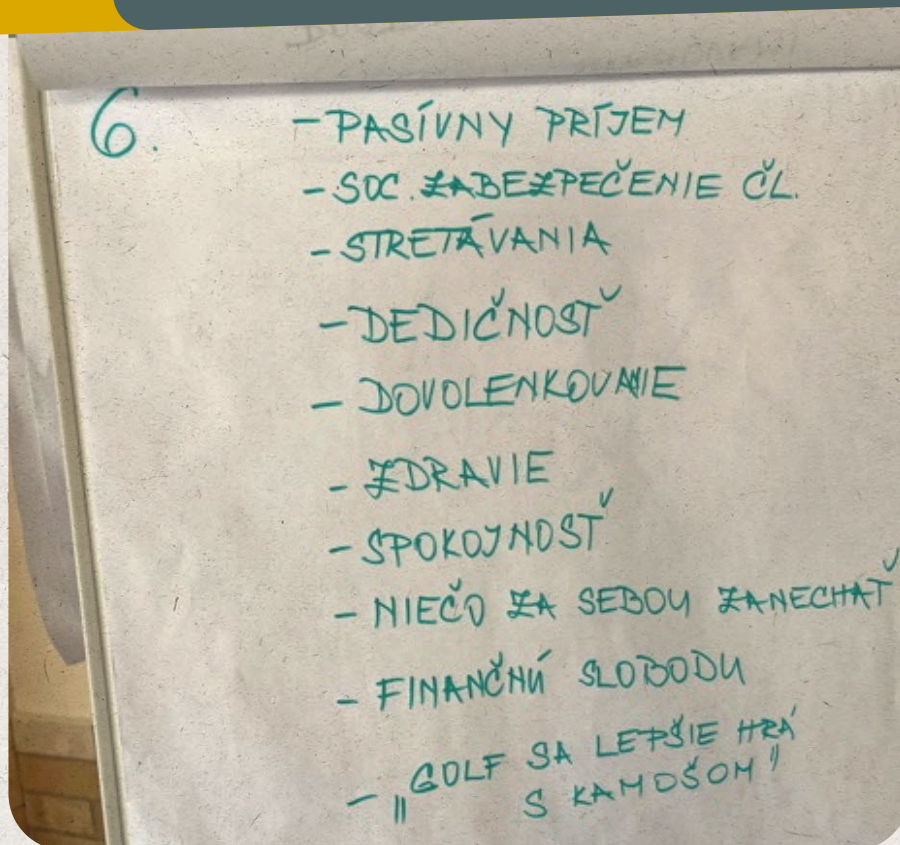 6.
- PASÍVNY PRÍJEM
- SOC. ZABEZPEČENIE ČL.
- STRETÁVANIA
- DEDIČNOSŤ
- DOVOLENKOVANIE
- ZDRAVIE
- SPOKOJNOSŤ
- NIEČO ZA SEBOU ZANECHAŤ
- FINANČNÚ SLOBODU
- „GOLF SA LEPŠIE HRÁ
S KAMOŠOM"